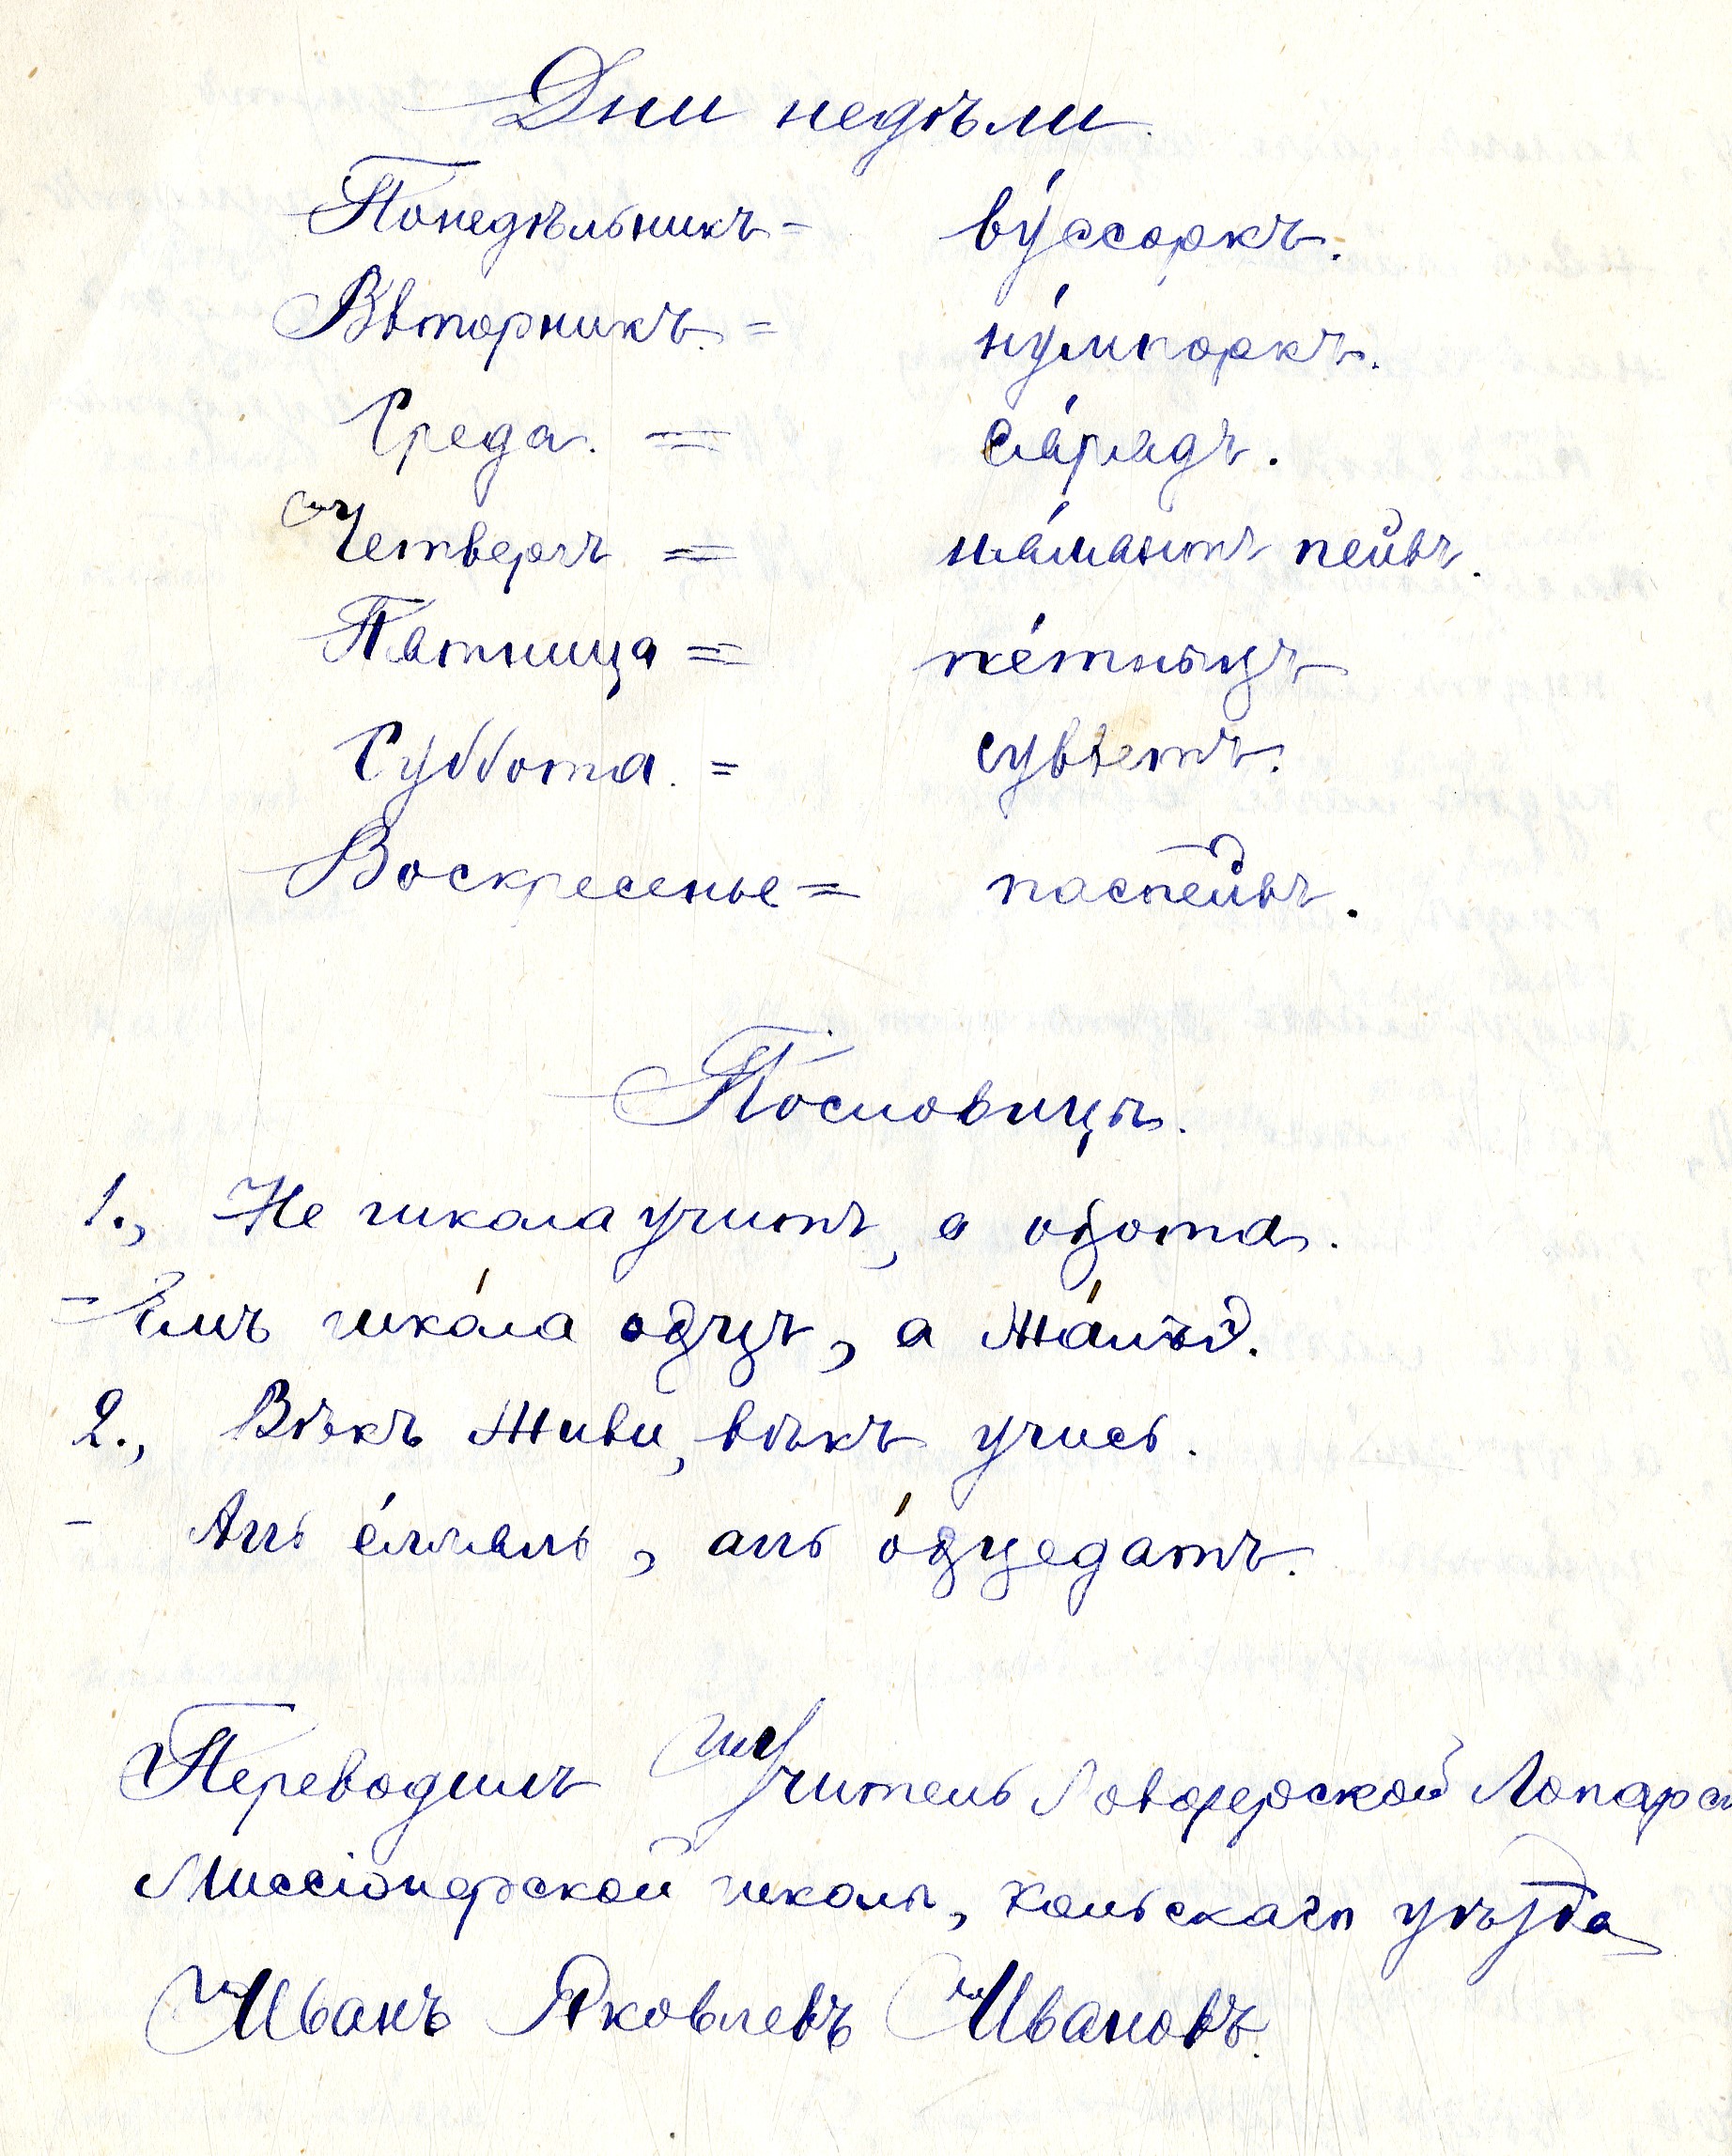 Дни недѣли.
Понедѣльникъ = ву́ссоркъ.
Вторникъ. = ну́мпоркъ.
Среда. = сла́рядъ.
Четвергъ = на́мантъ пейвъ.
Пятница = пе́тницъ
Суббота. = сувветъ.
Воскресенье = паспейвъ.
Пословицы.
1., Не школа учитъ, а охота.
- Ямъ шко́ла одчцъ, а жа́лъд.
2., Вѣкъ живи, вѣкъ учись.
- Апь е́ллель, апь о́дцедатъ.
Переводилъ Учитель Ловозерской Лопарск
Миссіонерской школы, Кольскаго уѣзда
Иванъ Яковлевъ Ивановъ.